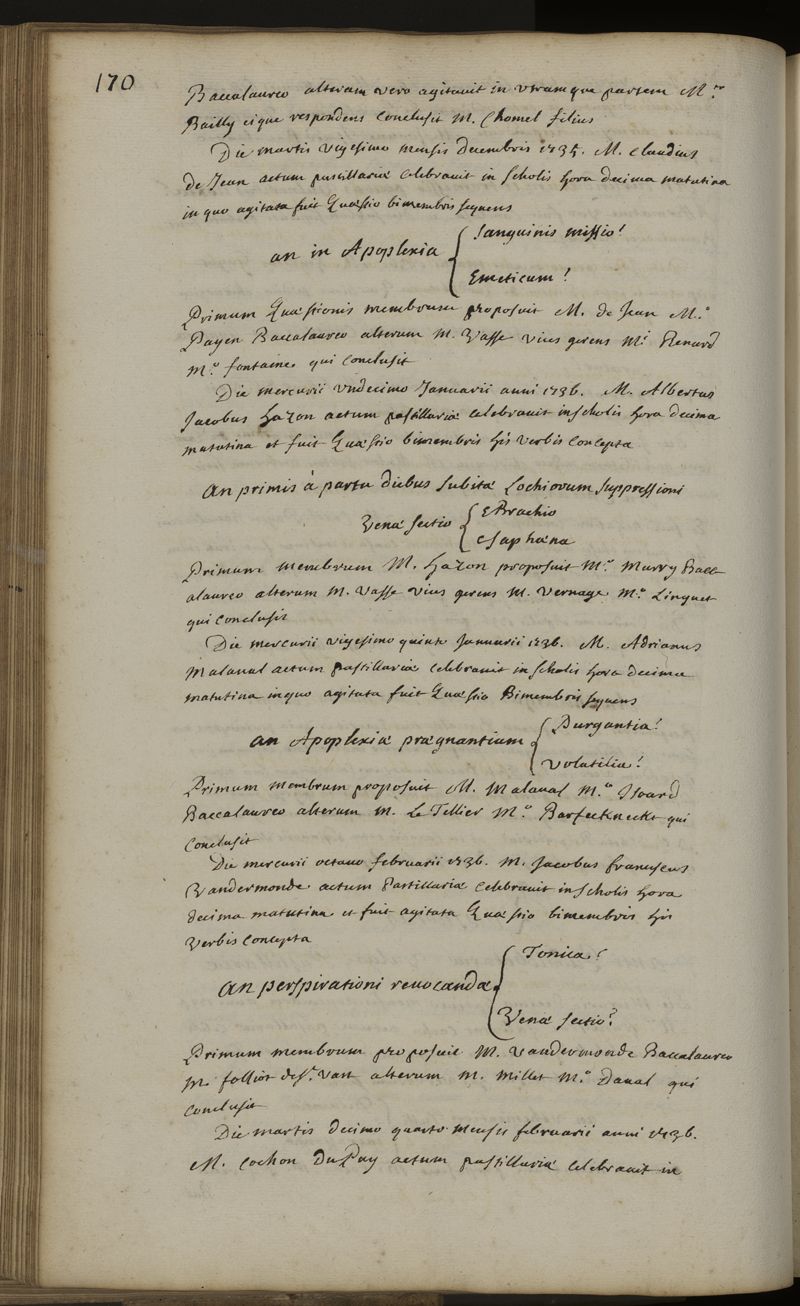 170
Baccalaureo alteram vero agitavit in utramque partem M.ro
Bailly eique respondens conclusit M. Chomel filius
Die martis vigesimo mensis decembris 1735. M. claudius
de Jean actum pastillariae celebravit in scholis hora decima matutina
in quo agitata fuit Quaestio bimembris sequens
an in Apoplexia { Sanguinis missio?
Emeticum?
Primum Quaestionis membrum proposuit M. de Jean M.o
Payen Baccalaureo alterum M. Vasse vices gerens M.i Renard
M.o fontaine qui conclusit
Die mercurii undecimo Januarii anni 1736. M. Albertus
Jacobus Hazon actum pastillariae celebravit in scholis hora decima
matutina et fuit Quaestio bimembris his verbis concepta
An primis à partu diebus subitae Lochiorum suppressioni
Venae sectio { è Brachio
è saphaena
Primum membrum M. Hazon proposuit M.o Murry Bacc-
alaureo alterum M. Vasse vices gerens M. Vernage M.o Linguet
qui conclusit
Die mercurii vigesimo quinto Januarii 1736. M. Adrianus
Malaval actum pastillariae celebravit in scholis hora decima
matutina in quo agitata fuit Quaestio Bimembris sequens
an Apoplexiae praegnantium { Purgantia?
Volatilia?
Primum membrum proposuit M. Malaval M.o
Baccalaureo alterum M. Le Tellier M.o qui
conclusit
Die mercurii octavo februarii 1736. M. Jacobus franciscus
Vandermonde actum Pastillariae celebravit in scholis hora
decima matutina et fuit agitata Quaestio bimembris his
verbis concepta
an perspirationi revocandae { Tonica?
Venae sectio?
Primum membrum proposuit M. Vandermonde Baccalaureo
M. folliot de St. Vast alterum M. Millet M.o Daval qui
conclusit
Die martis decimo quarto mensis februarii anni 1736.
M. Cochon Du Puy actum pastillariae celebravit in